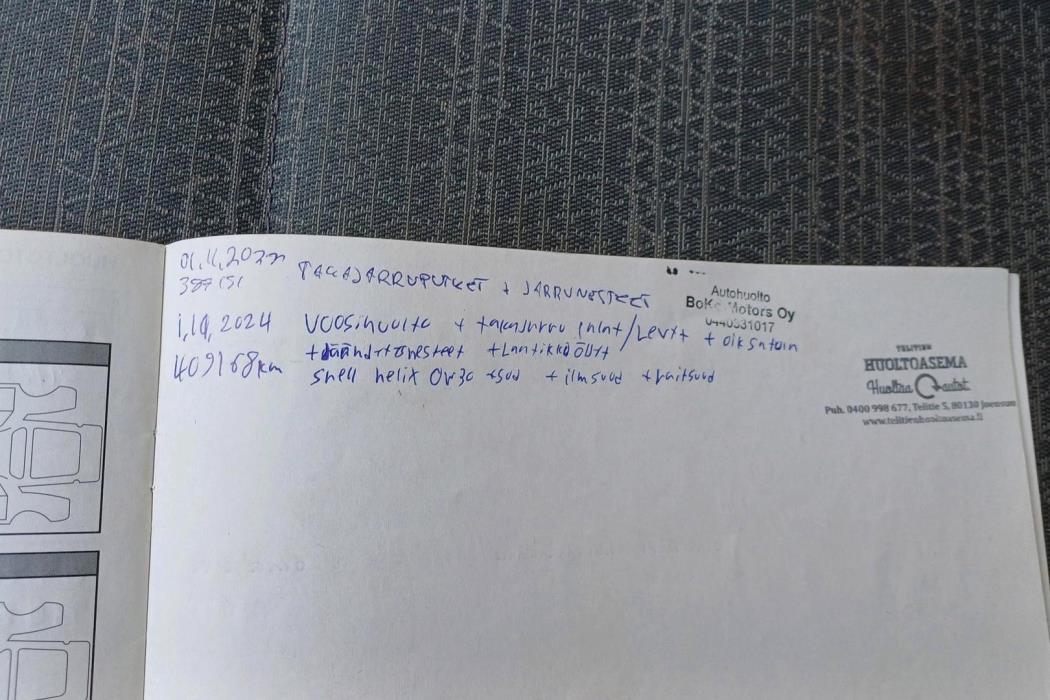 TAKAJARRUPUTKET + JARRUNESTEET
Autohuolto
Motors Oy
0440331017
1,10,2024 VUOSIHUOLTO + takajarru palat/Levyt + oik satain
409168km + jäähdytönesteet + Laatikkoöljyt
shell helix 0w30 + suod + ilmsuod + raitsuod
TELITIEN
HUOLTOASEMA
Huoltaa autot
Puh. 0400 998 677, Telitie 5, 80130 Joensuu
www.telitienhuoltoasema.fi